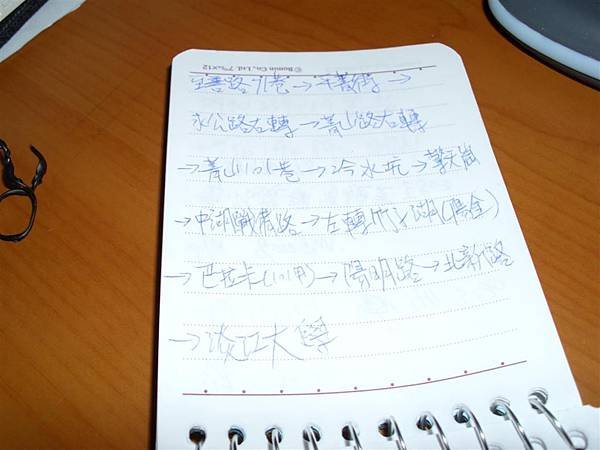 © Bonnin Co., Ltd. 7"⅝X12
至善路71巷→平菁街→
永公路右轉→菁山路右轉
→菁山101巷→冷水坑→擎天崗
→中湖戰備路→左轉竹子湖(陽金)
→巴拉卡(101甲)→陽明路→北新路
→淡江大學